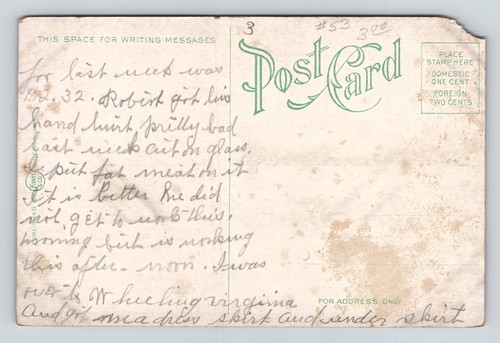 3
#53
3.00
THIS SPACE FOR WRITING MESSAGES
Post Card
PLACE
STAMP HERE
DOMESTIC
ONE CENT
FOREIGN
TWO CENTS
for last week was
32. Robert got his
hand hurt pretty bad
last week cut on glass.
I put fat meat on it
It is better he did
not get to work this.
morning but is working
this after-noon. I was
over to Wheeling virginia
And got me a dress skirt and under skirt
FOR ADDRESS ONLY